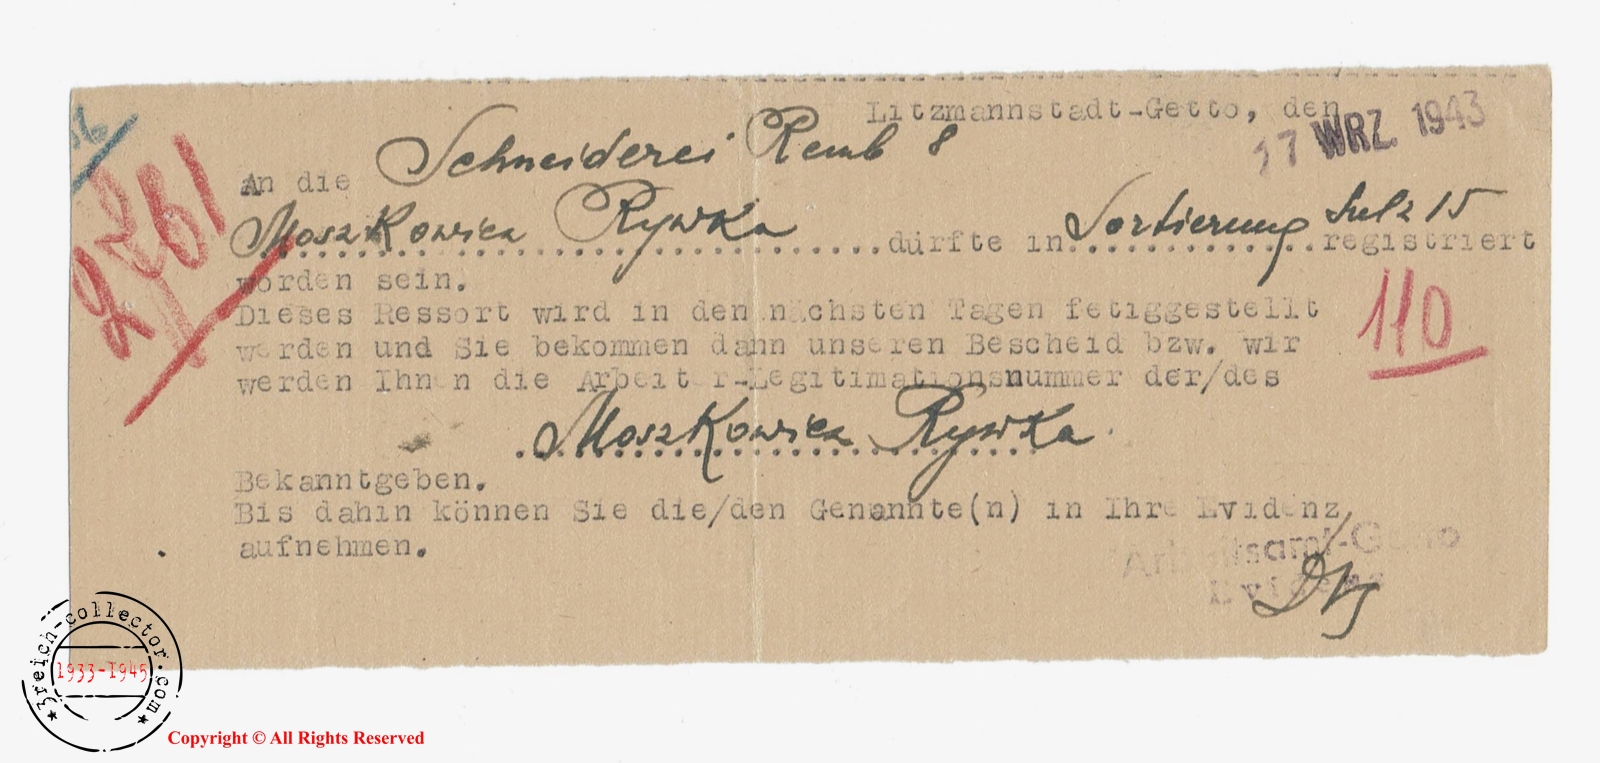 Litzmannstadt-Getto, den
17 WRZ. 1943
An die Schneiderei Remb 8
Moszkowicz Rywka dürfte in Sortierung Sulz 15 registriert
worden sein.
Dieses Ressort wird in den nächsten Tagen fetiggestellt
werden und Sie bekommen dann unseren Bescheid bzw. wir
werden Ihnen die Arbeiter-Legitimationsnummer der/des
Moszkowicz Rywka.
Bekanntgeben.
Bis dahin können Sie die/den Genannte(n) in Ihre Evidenz
aufnehmen.
Arbeitsamt-Getto
Evidenz
110
3reich-collector.com
1933-1945
Copyright © All Rights Reserved